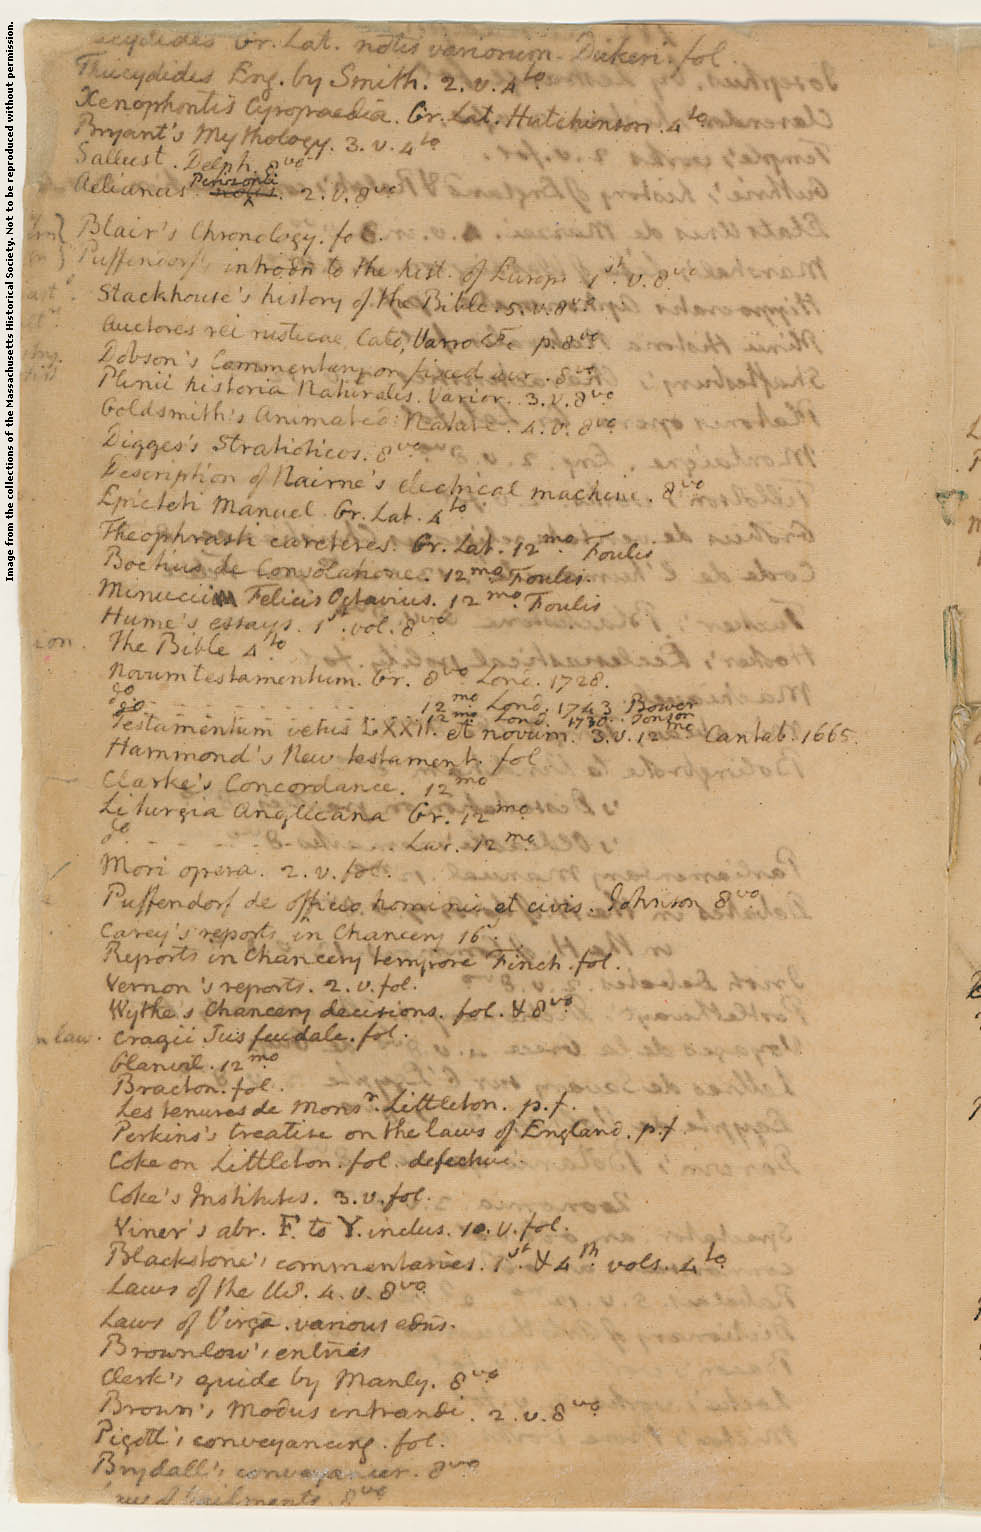 Image from the collections of the Massachusetts Historical Society. Not to be reproduced without permission.
Gr. Lat. notis variorum. Dukeri. fol.
Thucydides Eng. by Smith. 2. v. 4to
Xenophontis Cyropraedia. Gr. Lat. Hutchinson. 4to
Bryant's Mythology. 3. v. 4to
Sallust. Delph. 8vo
Aelianus Perizonii. 2. v. 8vo
Blair's Chronology. fol.
Puffendorf's introdn to the hist. of Europe 1st v. 8vo
Stackhouse's history of the Bible. 5. v. 8vo
Auctores rei rusticae, Cato, Varro &c. p. 8vo
Dobson's Commentary on fixed air. 8vo
Plinii historia Naturalis. Varior. 3. v. 8vo
Goldsmith's Animated Nature. 4. v. 8vo
Digges's Stratioticos. 8vo
Description of Nairne's electrical machine. 8vo
Epicteti Manuel. Gr. Lat. 4to
Theophrasti caracteres. Gr. Lat. 12mo. Foulis
Boethius de Consolatione. 12mo. Foulis.
Minucii Felicis Octavius. 12mo. Foulis
Hume's essays. 1st. vol. 8vo
the Bible 4to
Novum testamentum. Gr. 8vo Lond. 1728.
do 12mo Lond. 1743 Bowyer
do 12mo Lond. 1730. Tonson
Testamentum vetus LXXII. et novum. 3. v. 12mo Cantab. 1665.
Hammond's New testament. fol
Clarke's Concordance. 12mo
Liturgia Anglicana Gr. 12mo
do Lat. 12mo
Mori opera. 2. v. fol.
Puffendorf de officio hominis et civis. Johnson 8vo
Carey's reports in Chancery 16s.
Reports in Chancery tempore Finch. fol.
Vernon's reports. 2. v. fol.
Wythe's Chancery decisions. fol. & 8vo
n law. Cragii Jus feudale. fol.
Glanvil. 12mo
Bracton. fol.
Les tenures de Monsr. Littleton. p. f.
Perkins's treatise on the laws of England. p. f.
Coke on Littleton. fol. defective.
Coke's Institutes. 3. v. fol.
Viner's abr. F. to Y. inclus. 10. v. fol.
Blackstone's commentaries. 1st. & 4th vols. 4to
Laws of the US. 4. v. 8vo
Laws of Virga. various edns.
Brownlow's entries
Clerk's guide by Manly. 8vo
Brown's Modus intrandi. 2. v. 8vo
Pigott's conveyancing. fol.
Brydall's conveyancer. 8vo
of bailments. 8vo